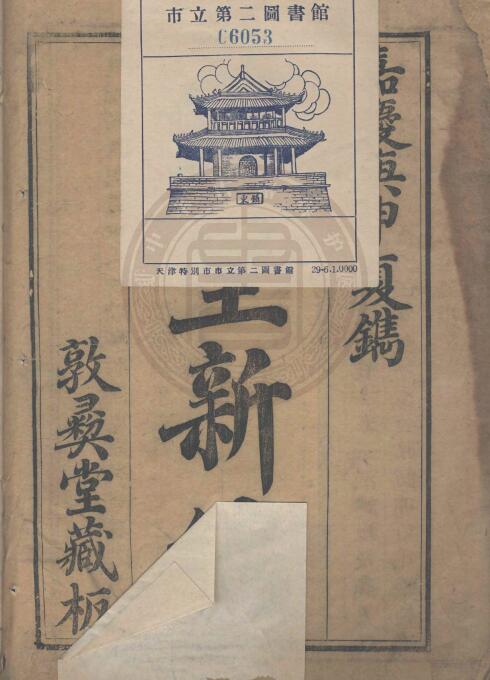 市立第二圖書館
C6053
鎮東
天津特別市市立第二圖書館 29-6.1.0000
嘉慶庚申夏鐫
新
敦彝堂藏板